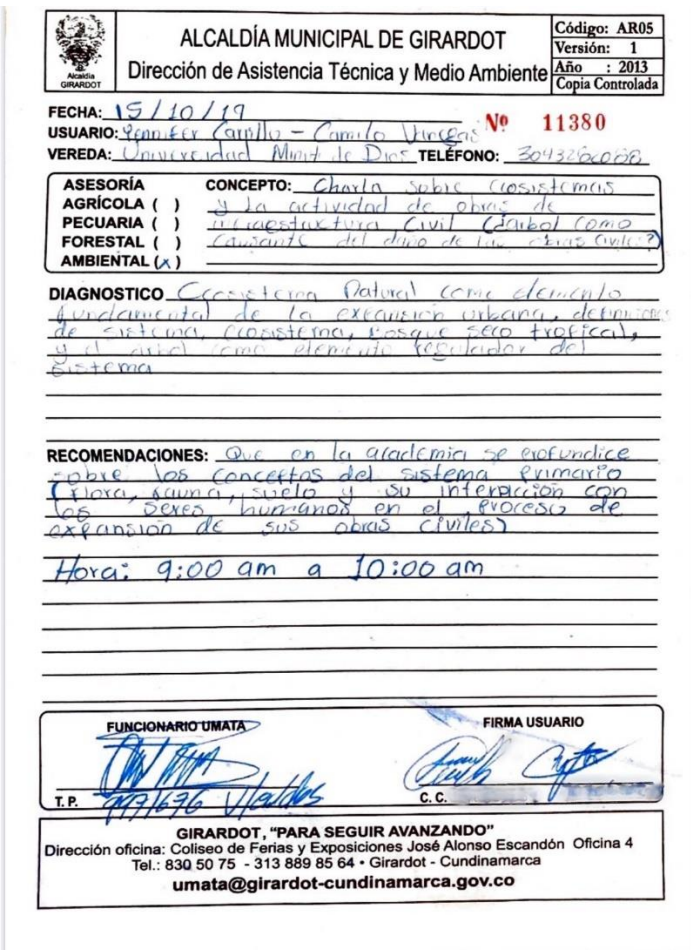 Alcaldía
GIRARDOT
ALCALDÍA MUNICIPAL DE GIRARDOT
Dirección de Asistencia Técnica y Medio Ambiente
Código: AR05
Versión: 1
Año : 2013
Copia Controlada
FECHA: 15/10/19
Nº 11380
USUARIO: Yennifer Carrillo - Camilo Vanegas
VEREDA: Universidad Minit de Dios TELÉFONO:
ASESORÍA
AGRÍCOLA ( )
PECUARIA ( )
FORESTAL ( )
AMBIENTAL (x)
CONCEPTO: Charla sobre ecosistemas
y la actividad de obras de
infraestructura Civil (árbol como
causante del daño de las obras civiles?)
DIAGNOSTICO Ecosistema Natural como elemento
fundamental de la expansión urbana, definiciones
de sistema, ecosistema, bosque seco tropical,
y el arbol como elemento regulador del
sistema
RECOMENDACIONES: Que en la academia se profundice
sobre los conceptos del sistema primario
(flora, fauna, suelo y su interacción con
los seres humanos en el proceso de
expansión de sus obras civiles)
Hora: 9:00 am a 10:00 am
FUNCIONARIO UMATA
T.P.
FIRMA USUARIO
C.C.
GIRARDOT, "PARA SEGUIR AVANZANDO"
Dirección oficina: Coliseo de Ferias y Exposiciones José Alonso Escandón Oficina 4
Tel.: 830 50 75 - 313 889 85 64 • Girardot - Cundinamarca
umata@girardot-cundinamarca.gov.co